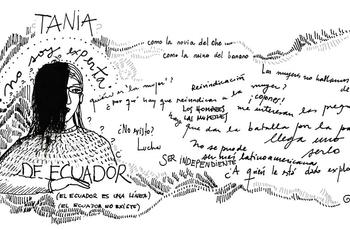 TANIA
no soy experta
como la novia del che
como la reina del banano
quién es "la mujer"?
Reivindicación
Las mujeres no hablamos
¿por qué hay que reivindicar a la mujer?
¡CÓMO!
LOS HOMBRES
hay LAS MUJERES
me interesan las preg
¿No existo?
que dar la batalla por la pa
Lucha
llega uno
No se puede
serlo
ser mujer latinoamericana
SER INDEPENDIENTE
¿A quién le ha dado explo
DE ECUADOR
(EL ECUADOR ES UNA LÍNEA)
(EL ECUADOR NO EXISTE)